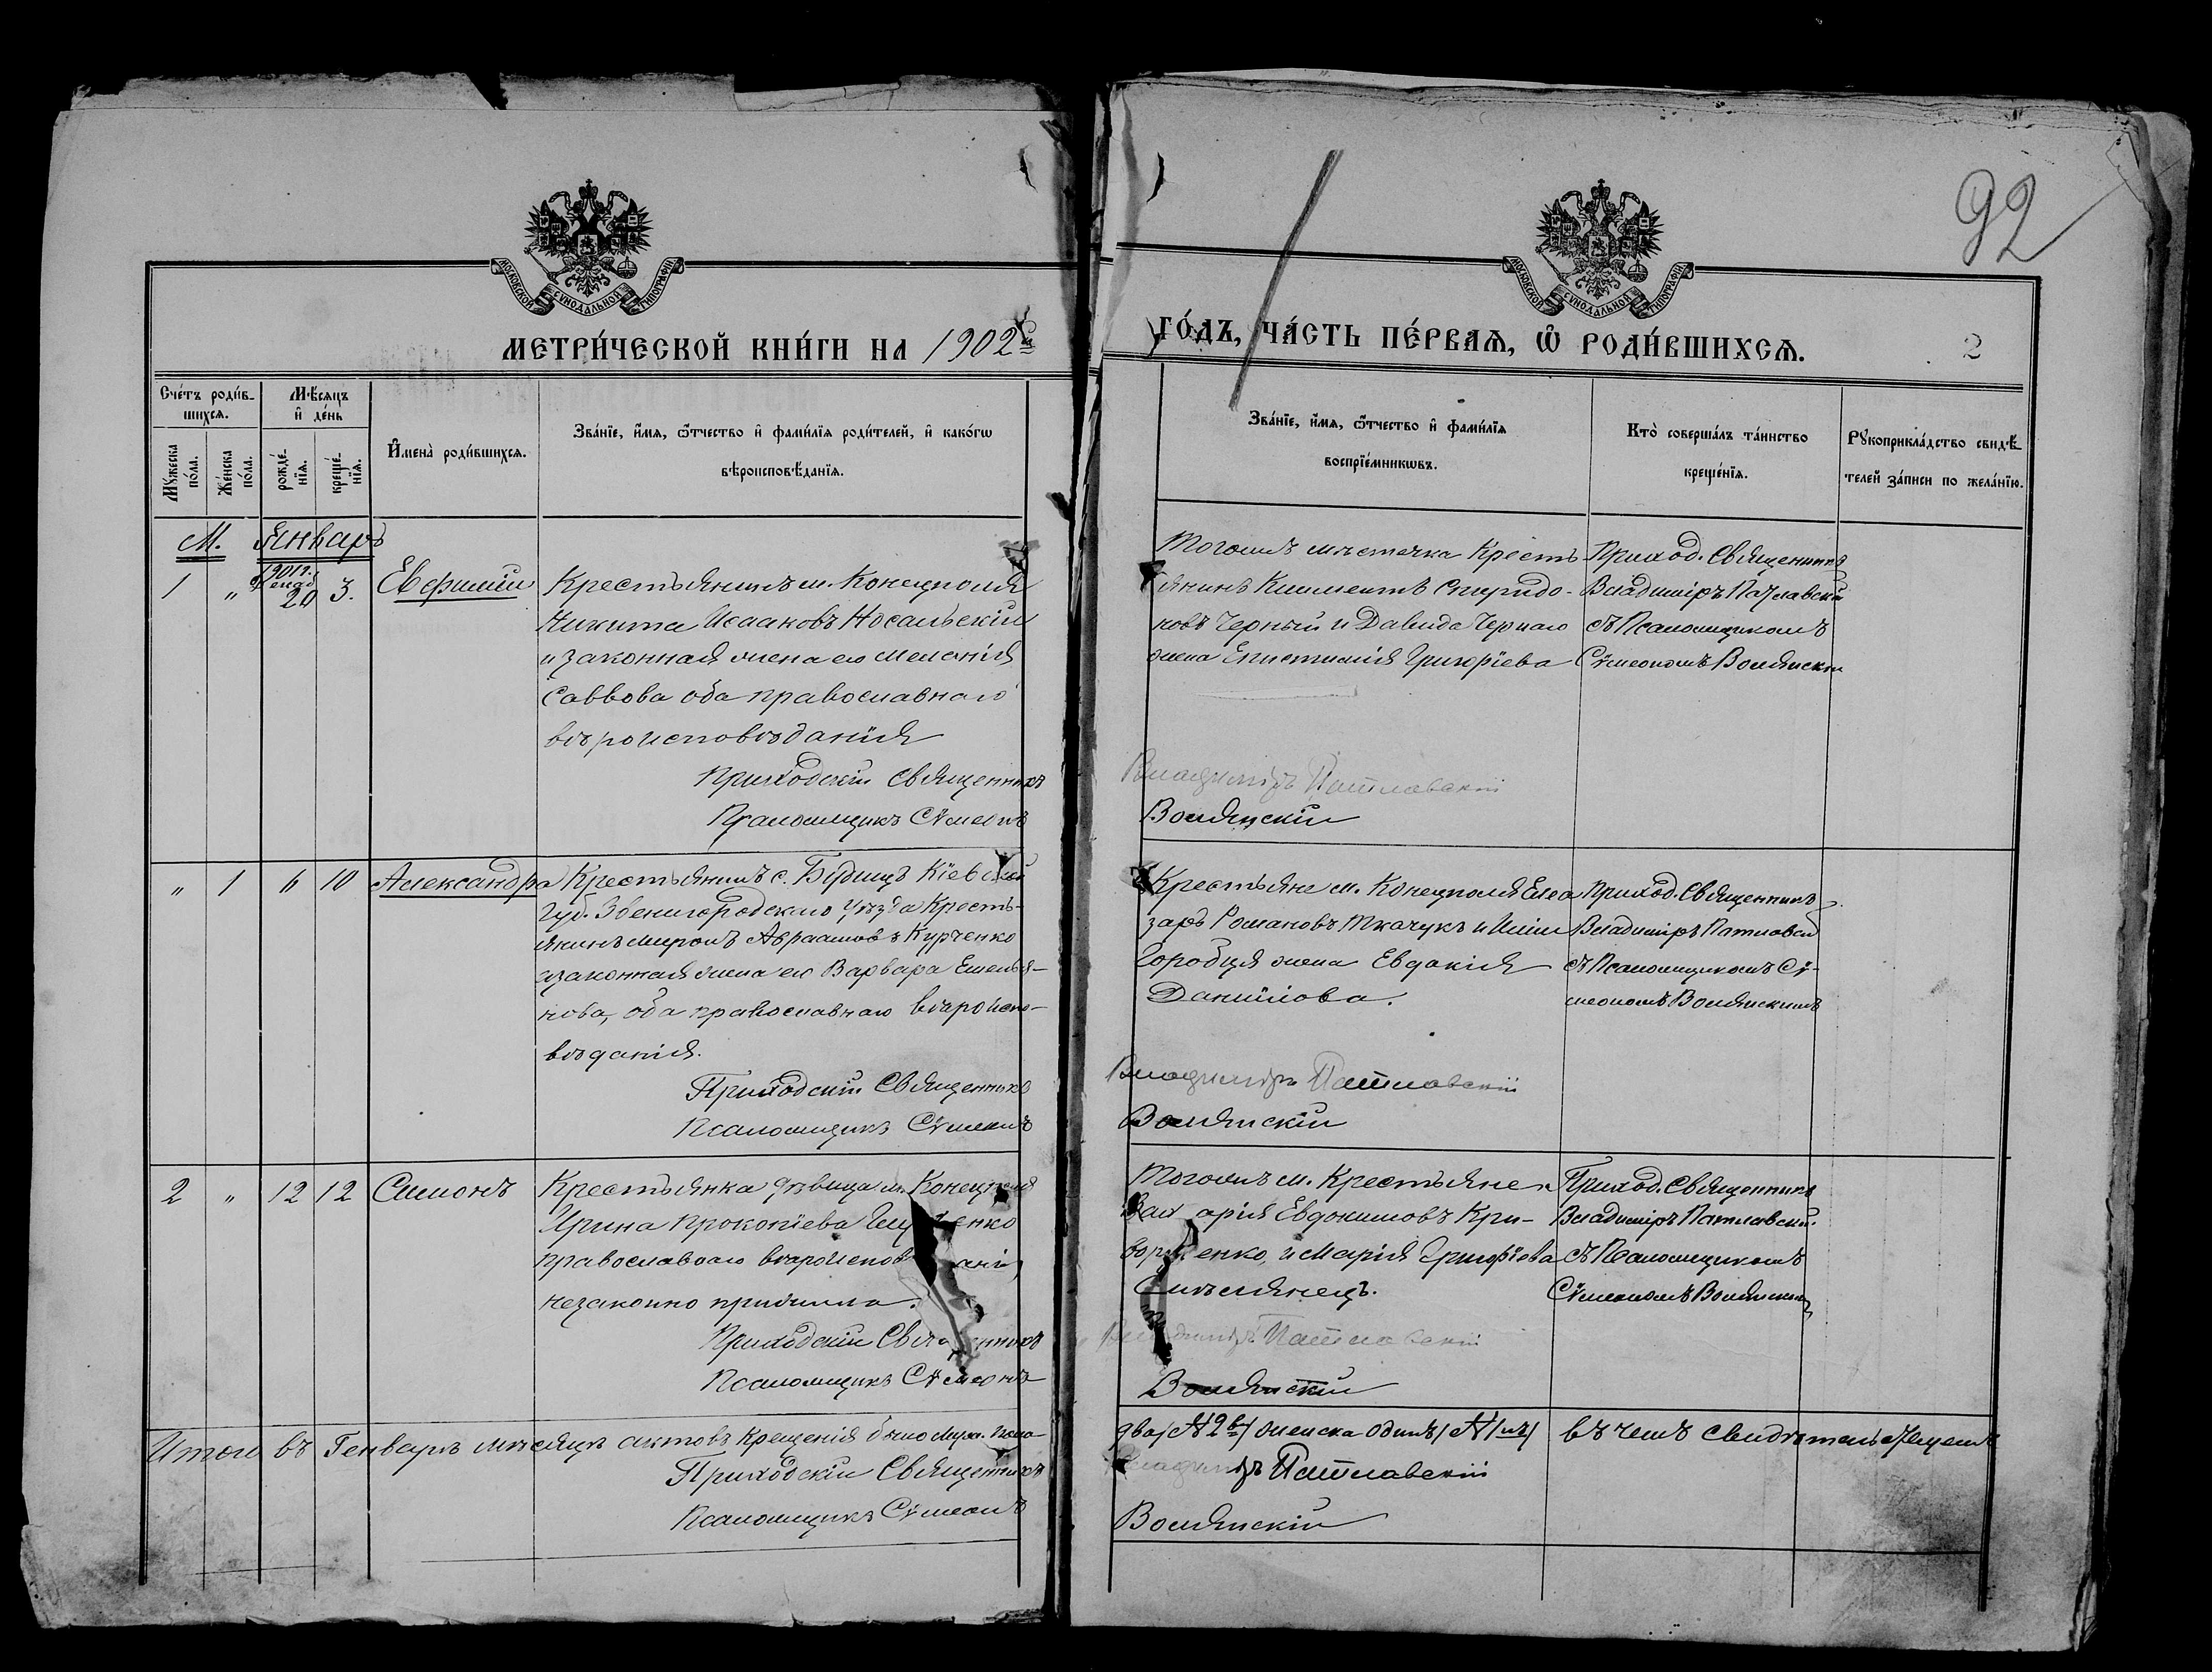 92
МОСКОВСКОЙ СѴНОДАЛЬНОЙ ТИПОГРАФІИ
МОСКОВСКОЙ СѴНОДАЛЬНОЙ ТИПОГРАФІИ
МЕТРИ́ЧЕСКОЙ КНИ́ГИ НА 1902й
ГО́ДЪ, ЧА́СТЬ ПЕ́РВАѦ, Ѡ҆ РОДИ́ВШИХСѦ.
2
Сче́тъ роди́в-
шихсѧ.
Мѣсѧцъ
и҆ де́нь
Мꙋ́жеска
по́ла.
Же́нска
по́ла.
рожде́-
нїѧ.
креще́-
нїѧ.
И҆мена̀ роди́вшихсѧ.
Зва́нїе, и҆́мѧ, ѻ҆́тчество и҆ фами́лїѧ роди́телей, и҆ како́гѡ
вѣроисповѣ́данїѧ.
Зва́нїе, и҆́мѧ, ѻ҆́тчество и҆ фами́лїѧ
воспрїе́мникѡвъ.
Кто̀ соверша́лъ та́инство
креще́нїѧ.
Рꙋкоприкла́дство свидѣ́-
телей за́писи по жела́нїю.
М. Январь
1 " 1901г. 20 3. Евфимій
Крестьянинъ м. Конецполя
Никита Исааковъ Носальскій
и законная жена его Меланія
Саввова оба православнаго
вѣроисповѣданія
Приходскій Священникъ
Псаломщикъ Сѵмеонъ
Тогожъ мѣстечка Кресть-
янинъ Климентъ Спиридо-
новъ Черный и Давида Чернаго
жена Епистимія Григоріева
Владиміръ Патлавскій
Волянскій
Приход. Священникъ
Владиміръ Патлавскій
съ Псаломщикомъ
Сѵмеономъ Волянским
" 1 6 10 Александра
Крестьянинъ с. Будищъ Кіевской
Губ. Звенигородскаго уѣзда Кресть-
янинъ Миронъ Авраамовъ Курченко
и законная жена его Варвара Емелья-
нова, оба православнаго вѣроиспо-
вѣданія.
Приходскій Священникъ
Псаломщикъ Сѵмеонъ
Крестьяне м. Конецполя Елеа
заръ Романовъ Ткачукъ и Иліи
Горобця жена Евдокія
Даніилова.
Владиміръ Патлавскій
Волянскій
Приход. Священникъ
Владиміръ Патлавскій
съ Псаломщикомъ Сѵ-
меономъ Волянскимъ
2 " 12 12 Симонъ
Крестьянка дѣвица м. Конецполя
Ирина Прокопіева
православнаго
незаконно прижила.
Приходскій Священникъ
Псаломщикъ Сѵмеонъ
Тогожъ м. Крестьяне
Захарія Евдокимовъ Кри-
и Марія Григоріева
Владиміръ Патлавскій
Волянскій
Приход. Священникъ
Владиміръ Патлавскій
съ Псаломщикомъ
Сѵмеономъ Волянским
Итого въ Генварѣ мѣсяцѣ актовъ крещенія было Муж. пола
два /№ 2й/ женска одинъ /№ 1й/ въ чемъ свидѣтельствуемъ
Приходскій Священникъ
Владиміръ Патлавскій
Псаломщикъ Сѵмеонъ
Волянскій